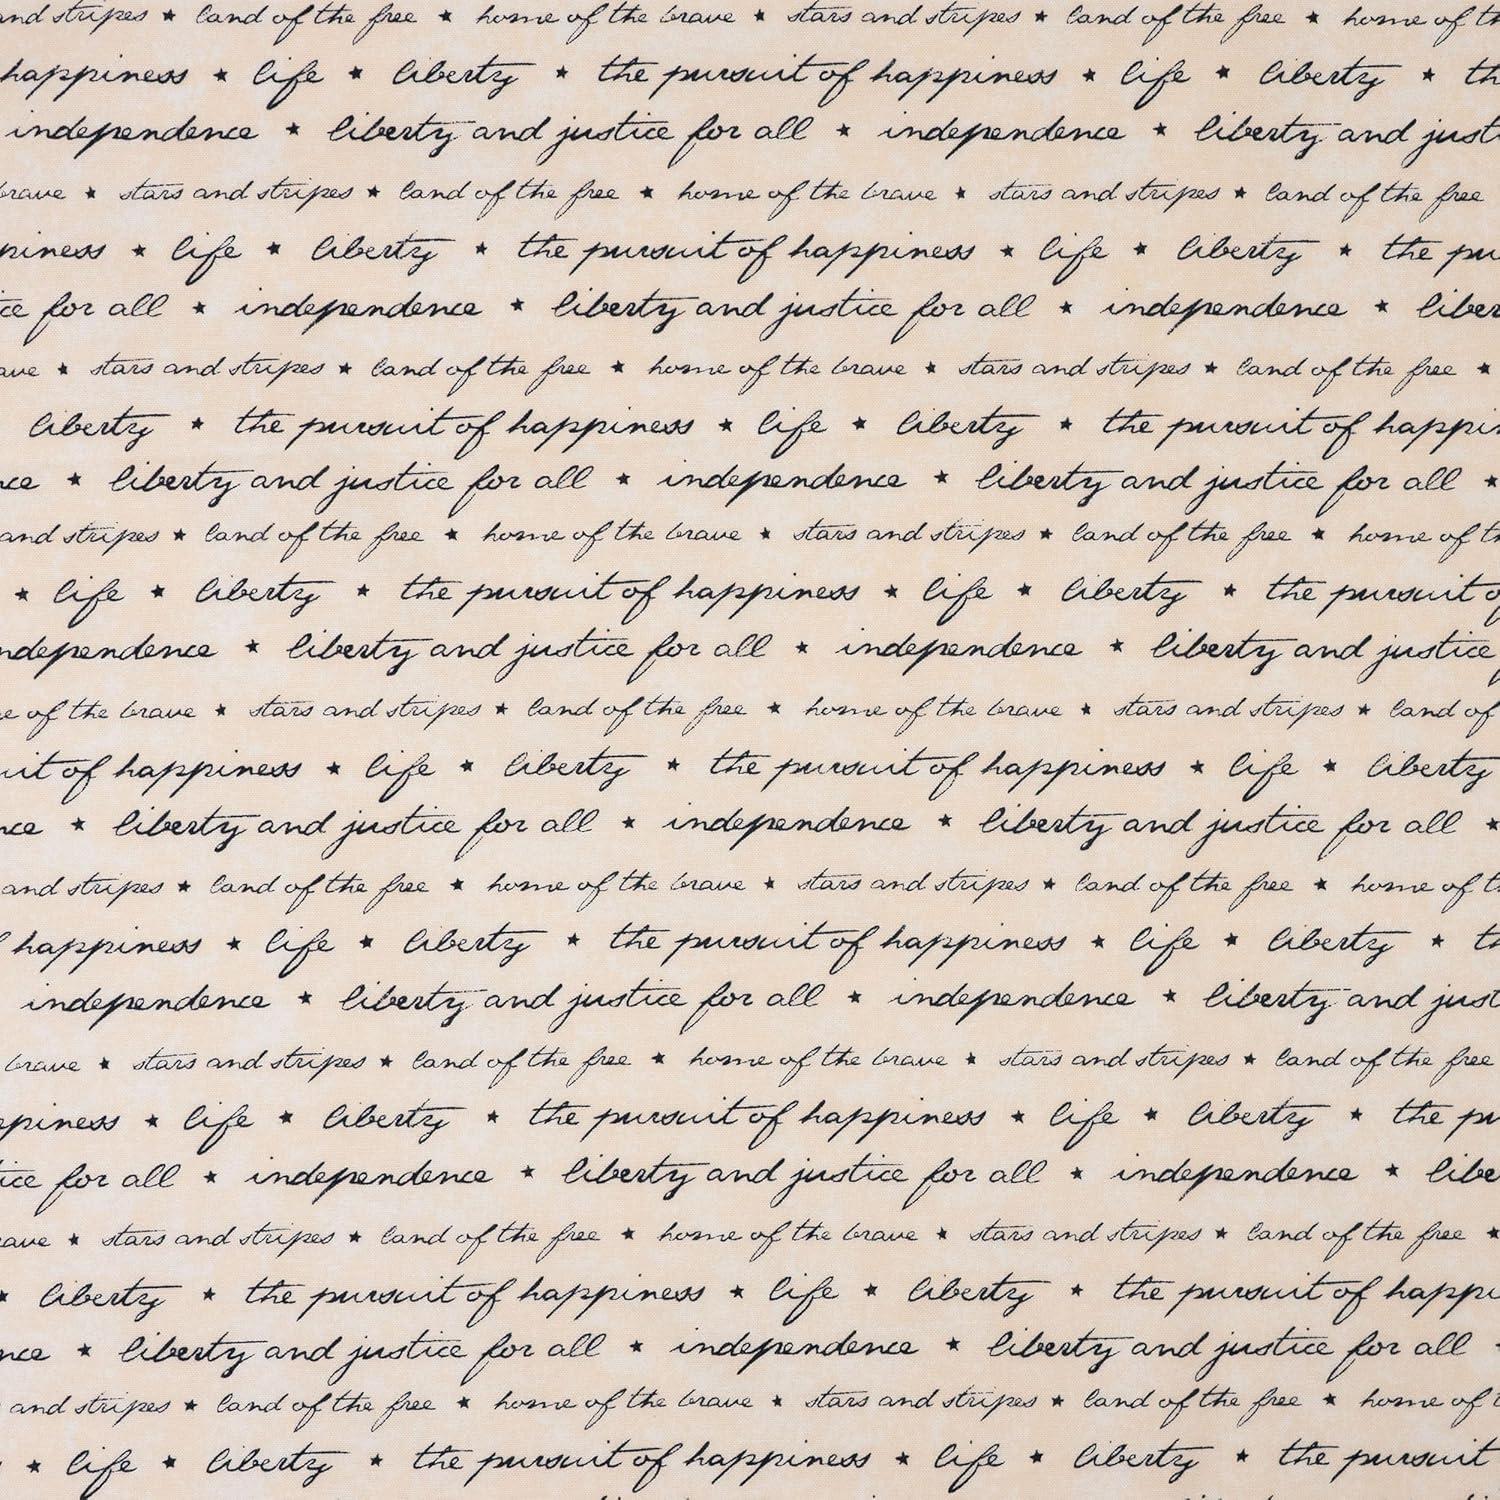 and stripes ★ land of the free ★ home of the brave ★ stars and stripes ★ land of the free ★ home of th
happiness ★ life ★ liberty ★ the pursuit of happiness ★ life ★ liberty ★ th
independence ★ liberty and justice for all ★ independence ★ liberty and just
brave ★ stars and stripes ★ land of the free ★ home of the brave ★ stars and stripes ★ land of the free
piness ★ life ★ liberty ★ the pursuit of happiness ★ life ★ liberty ★ the pu
ice for all ★ independence ★ liberty and justice for all ★ independence ★ liber
ave ★ stars and stripes ★ land of the free ★ home of the brave ★ stars and stripes ★ land of the free ★
liberty ★ the pursuit of happiness ★ life ★ liberty ★ the pursuit of happin
ce ★ liberty and justice for all ★ independence ★ liberty and justice for all ★
and stripes ★ land of the free ★ home of the brave ★ stars and stripes ★ land of the free ★ home of th
★ life ★ liberty ★ the pursuit of happiness ★ life ★ liberty ★ the pursuit o
ndependence ★ liberty and justice for all ★ independence ★ liberty and justice
e of the brave ★ stars and stripes ★ land of the free ★ home of the brave ★ stars and stripes ★ land of
uit of happiness ★ life ★ liberty ★ the pursuit of happiness ★ life ★ liberty
nce ★ liberty and justice for all ★ independence ★ liberty and justice for all ★
and stripes ★ land of the free ★ home of the brave ★ stars and stripes ★ land of the free ★ home of t
f happiness ★ life ★ liberty ★ the pursuit of happiness ★ life ★ liberty ★ th
independence ★ liberty and justice for all ★ independence ★ liberty and just
brave ★ stars and stripes ★ land of the free ★ home of the brave ★ stars and stripes ★ land of the free
ppiness ★ life ★ liberty ★ the pursuit of happiness ★ life ★ liberty ★ the pu
ice for all ★ independence ★ liberty and justice for all ★ independence ★ libe
rave ★ stars and stripes ★ land of the free ★ home of the brave ★ stars and stripes ★ land of the free ★
★ liberty ★ the pursuit of happiness ★ life ★ liberty ★ the pursuit of happi
nce ★ liberty and justice for all ★ independence ★ liberty and justice for all
and stripes ★ land of the free ★ home of the brave ★ stars and stripes ★ land of the free ★ home of t
★ life ★ liberty ★ the pursuit of happiness ★ life ★ liberty ★ the pursuit